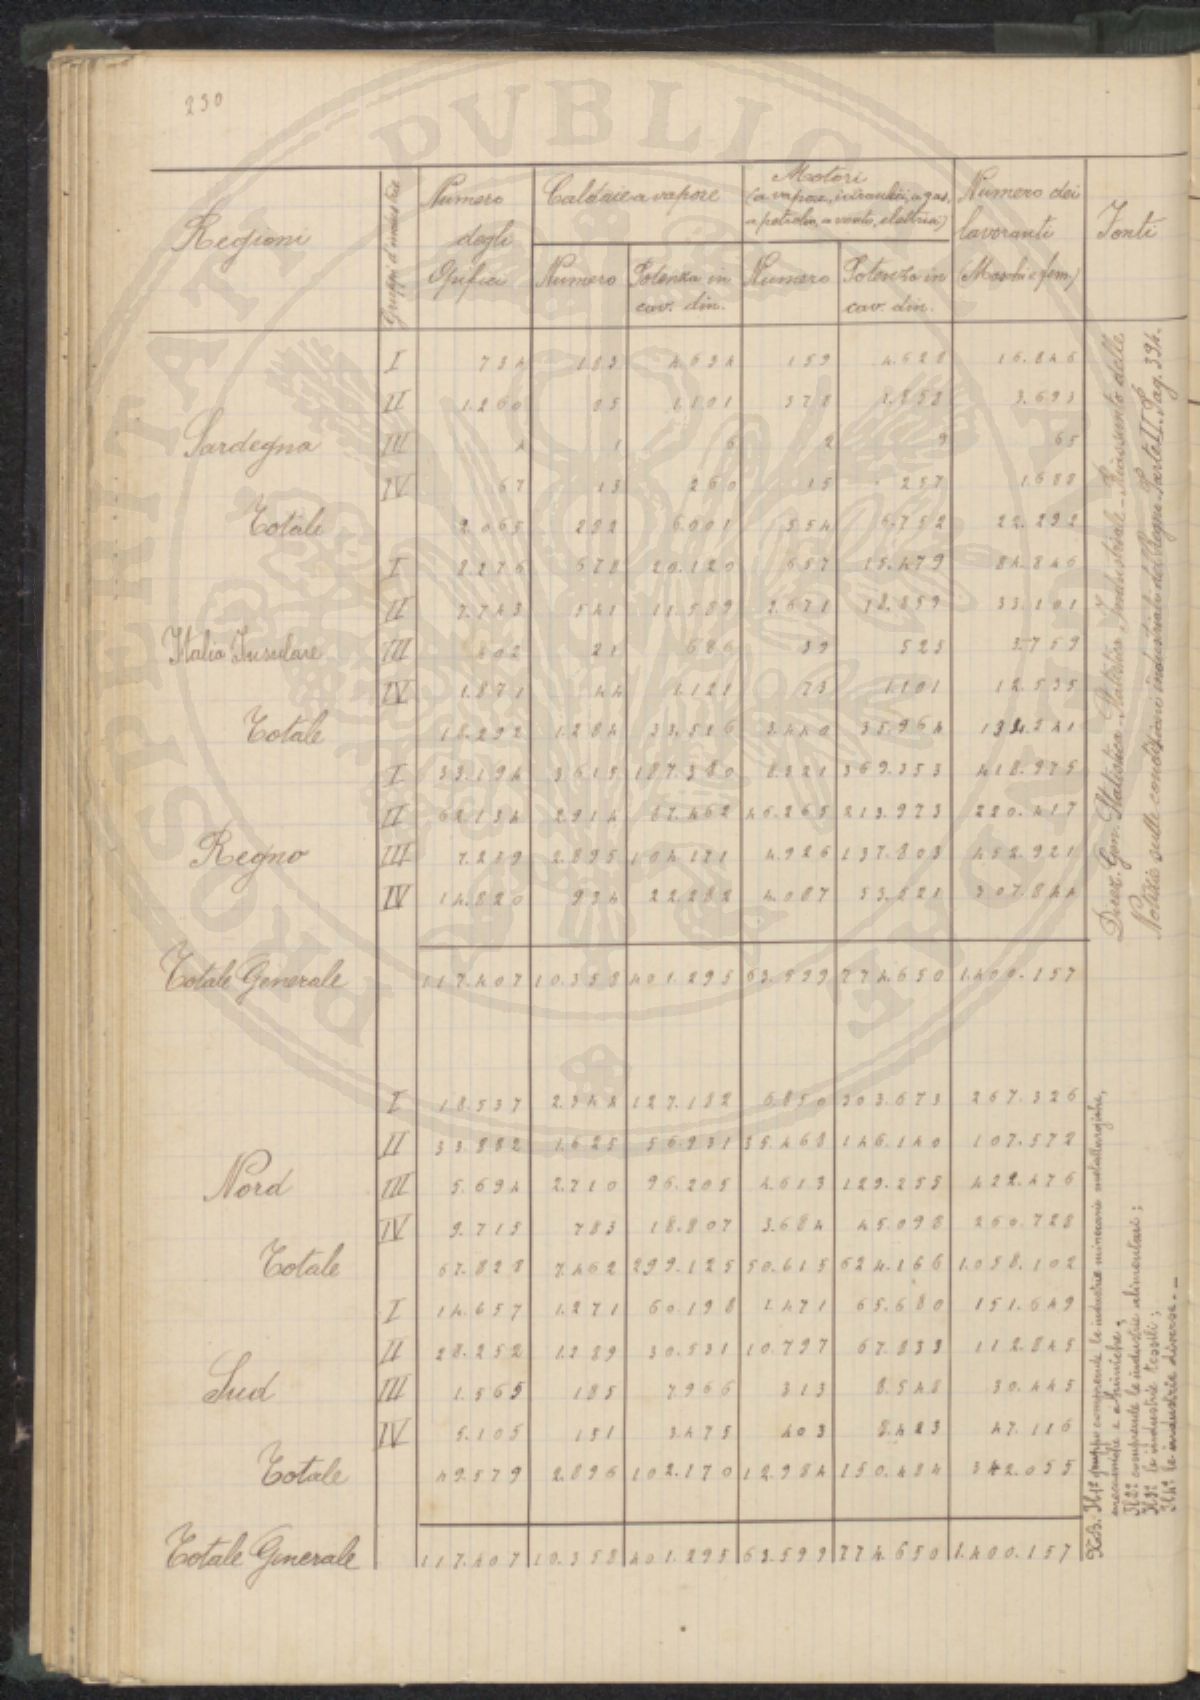 230
Regioni
Gruppi d'industrie
Numero degli Opifici
Caldaie a vapore
Numero
Potenza in cav. din.
Motori
(a vapore, idraulici, a gas, a petrolio, a vento, elettrici)
Numero
Potenza in cav. din.
Numero dei lavoranti (Maschi e fem.)
Fonti
I 734 183 4.634 159 4.628 16.846
II 1.260 85 1.101 378 1.858 3.693
Sardegna III 4 1 6 2 9 65
IV 67 13 260 15 257 1.688
Totale 2.065 282 6.001 554 6.752 22.292
I 8.276 678 20.120 657 15.479 84.846
II 7.743 541 11.589 2.671 18.859 33.101
Italia Insulare III 802 21 686 39 525 3.759
IV 1.871 44 1.121 73 1.101 12.535
Totale 18.292 1.284 33.516 3.440 35.964 134.241
I 33.194 3.615 187.380 8.321 369.353 418.975
II 62.134 2.914 87.462 46.265 213.973 220.417
Regno III 7.219 2.895 104.171 4.926 137.803 452.921
IV 14.820 934 22.282 4.087 53.521 307.844
Totale Generale 117.407 10.358 401.295 63.599 774.650 1.400.157
I 18.537 2.344 127.182 6.850 303.673 267.326
II 33.882 1.625 56.931 35.468 146.140 107.572
Nord III 5.694 2.710 96.205 4.613 129.255 422.476
IV 9.715 783 18.807 3.684 45.098 260.728
Totale 67.828 7.462 299.125 50.615 624.166 1.058.102
I 14.657 1.271 60.198 1.471 65.680 151.649
II 28.252 1.289 30.531 10.797 67.833 112.845
Sud III 1.565 185 7.966 313 8.548 30.445
IV 5.105 151 3.475 403 8.423 47.116
Totale 49.579 2.896 102.170 12.984 150.484 342.055
Totale Generale 117.407 10.358 401.295 63.599 774.650 1.400.157
Direz. Gen. Statistica. Statistica Industriale - Riassunto delle
Notizie sulle condizioni industriali del Regno. Parte II. Pag. 394.
N.B. Il 1º gruppo comprende le industrie minerarie metallurgiche,
meccaniche e chimiche;
Il 2º comprende le industrie alimentari;
Il 3º le industrie tessili;
Il 4º le industrie diverse.
PROSPERITATI PUBLICAE